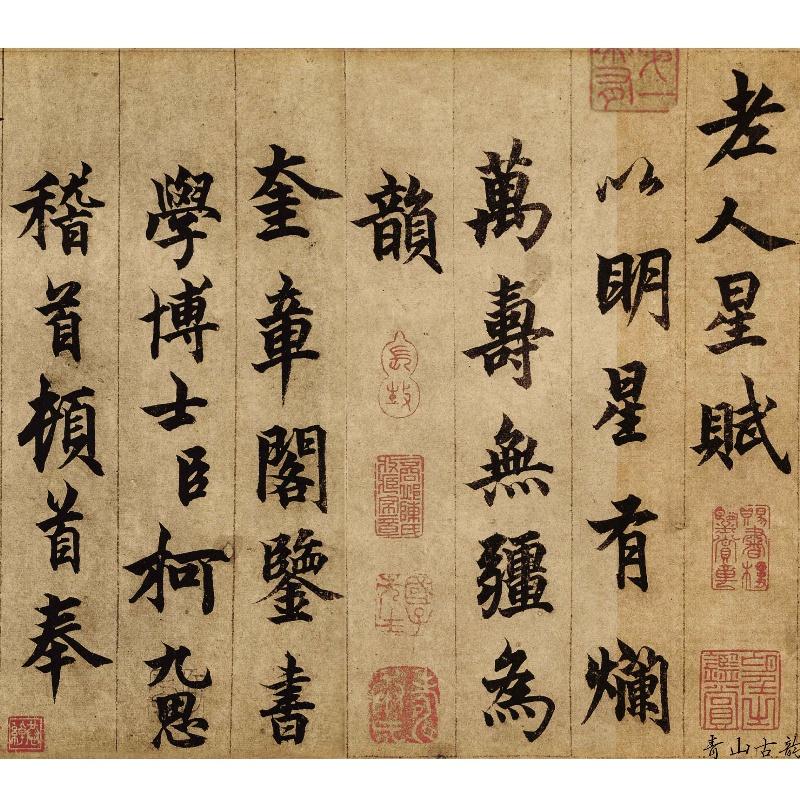 老人星賦
以明星有爛
萬壽無疆為
韻
奎章閣鑒書
學博士臣柯九思
稽首頓首奉
青山古韵